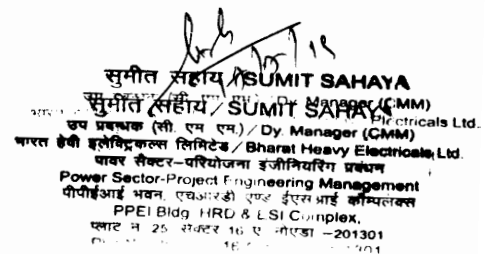 सुमीत सहाय / SUMIT SAHAYA
Dy. Manager (CMM)
सुमीत सहाय / SUMIT SAHAYA
Electricals Ltd.
उप प्रबन्धक (सी. एम एम.) / Dy. Manager (CMM)
भारत हेवी इलेक्ट्रिकल्स लिमिटेड / Bharat Heavy Electricals Ltd.
पावर सैक्टर-परियोजना इंजीनियरिंग प्रबंधन
Power Sector-Project Engineering Management
पीपीईआई भवन, एचआरडी एण्ड ईएसआई कॉम्पलैक्स
PPEI Bldg HRD & ESI Complex,
प्लाट न 25 सेक्टर 16 ए नोएडा -201301